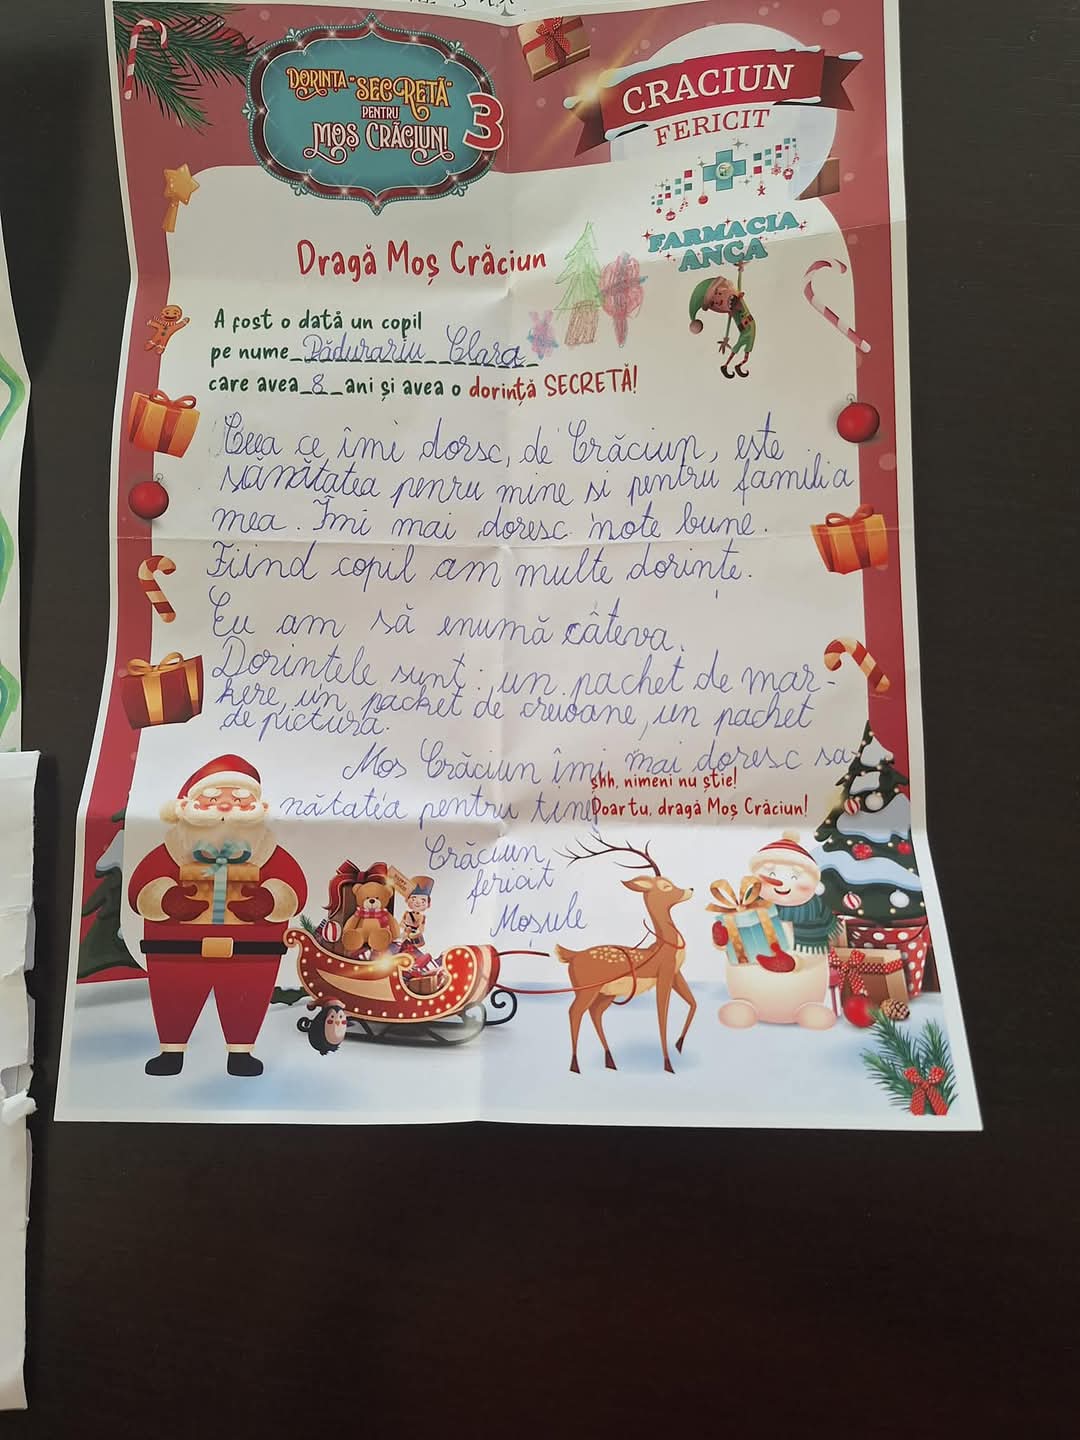 DORINȚA "SECRETĂ"
PENTRU
MOȘ CRĂCIUN!
3
CRACIUN
FERICIT
FARMACIA
ANCA
Dragă Moș Crăciun
A fost o dată un copil
pe nume Pădurariu Clara
care avea 8 ani și avea o dorință SECRETĂ!
Ceea ce îmi dorsc, de Crăciun, este
sănătatea penru mine si pentru familia
mea. Îmi mai doresc note bune.
Fiind copil am multe dorințe.
Eu am să enumă câteva.
Dorintele sunt: un pachet de mar-
kere, un pachet de creioane, un pachet
de pictura.
Mos Crăciun îmi mai doresc sa-
nătatea pentru tine!
șhh, nimeni nu știe!
Doar tu, dragă Moș Crăciun!
Crăciun
fericit
Moșule